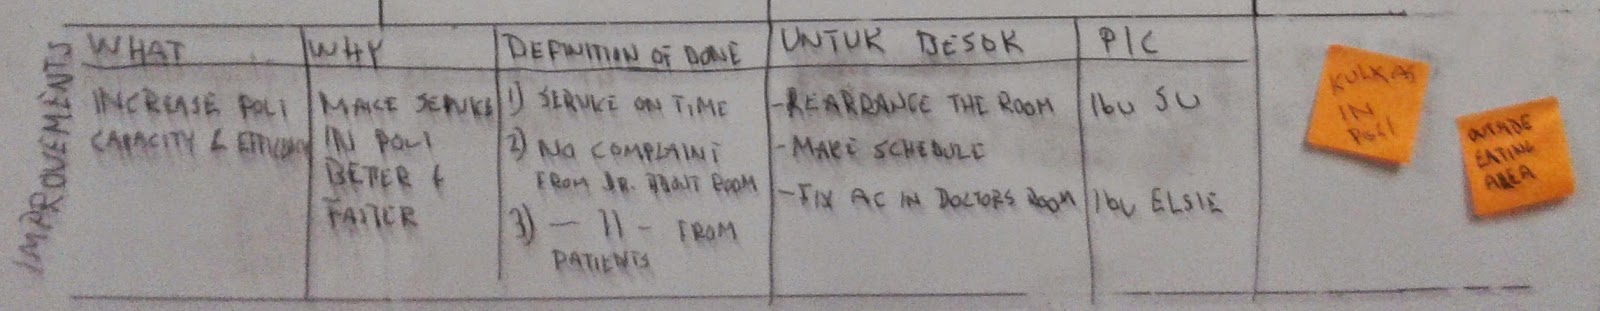 IMPROVEMENTS
WHAT
INCREASE POLI
CAPACITY & EFFICIENCY
WHY
MAKE SERVICE
IN POLI
BETER &
FASTER
DEFINITION OF DONE
1) SERVICE ON TIME
2) NO COMPLAINT
FROM DR. ABOUT ROOM
3) — 11 — FROM
PATIENTS
UNTUK BESOK
-REARRANGE THE ROOM
-MAKE SCHEDULE
-FIX AC IN DOCTORS ROOM
PIC
IBU SU
IBU ELSIE
KULKAS
IN
POLI
OUTSIDE
EATING
AREA